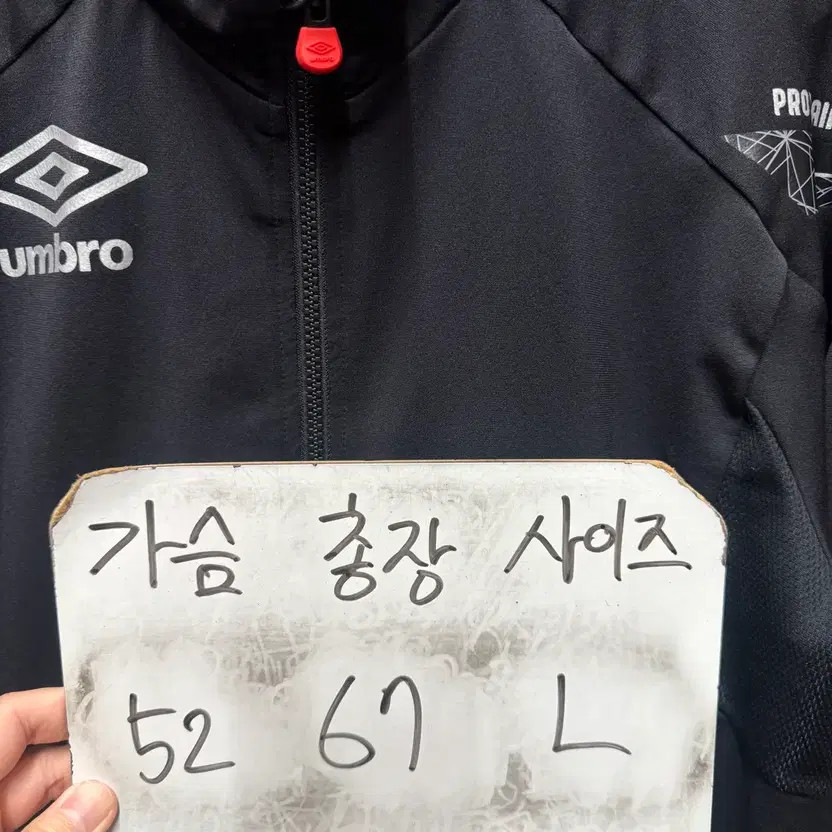 umbro
umbro
PRO
가슴 총장 사이즈
52 67 L